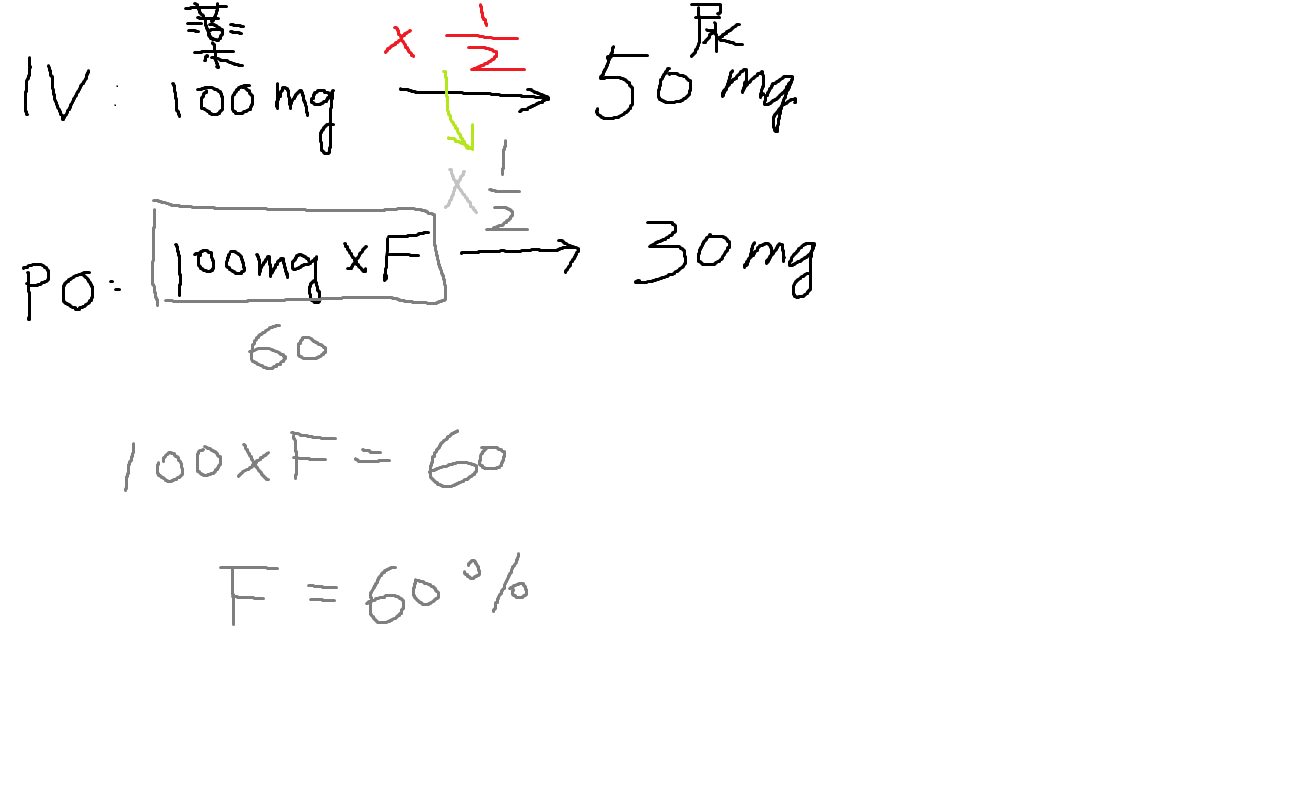 薬 尿
IV: 100mg × 1/2 → 50mg
× 1/2
PO: 100mg × F → 30mg
60
100 × F = 60
F = 60%